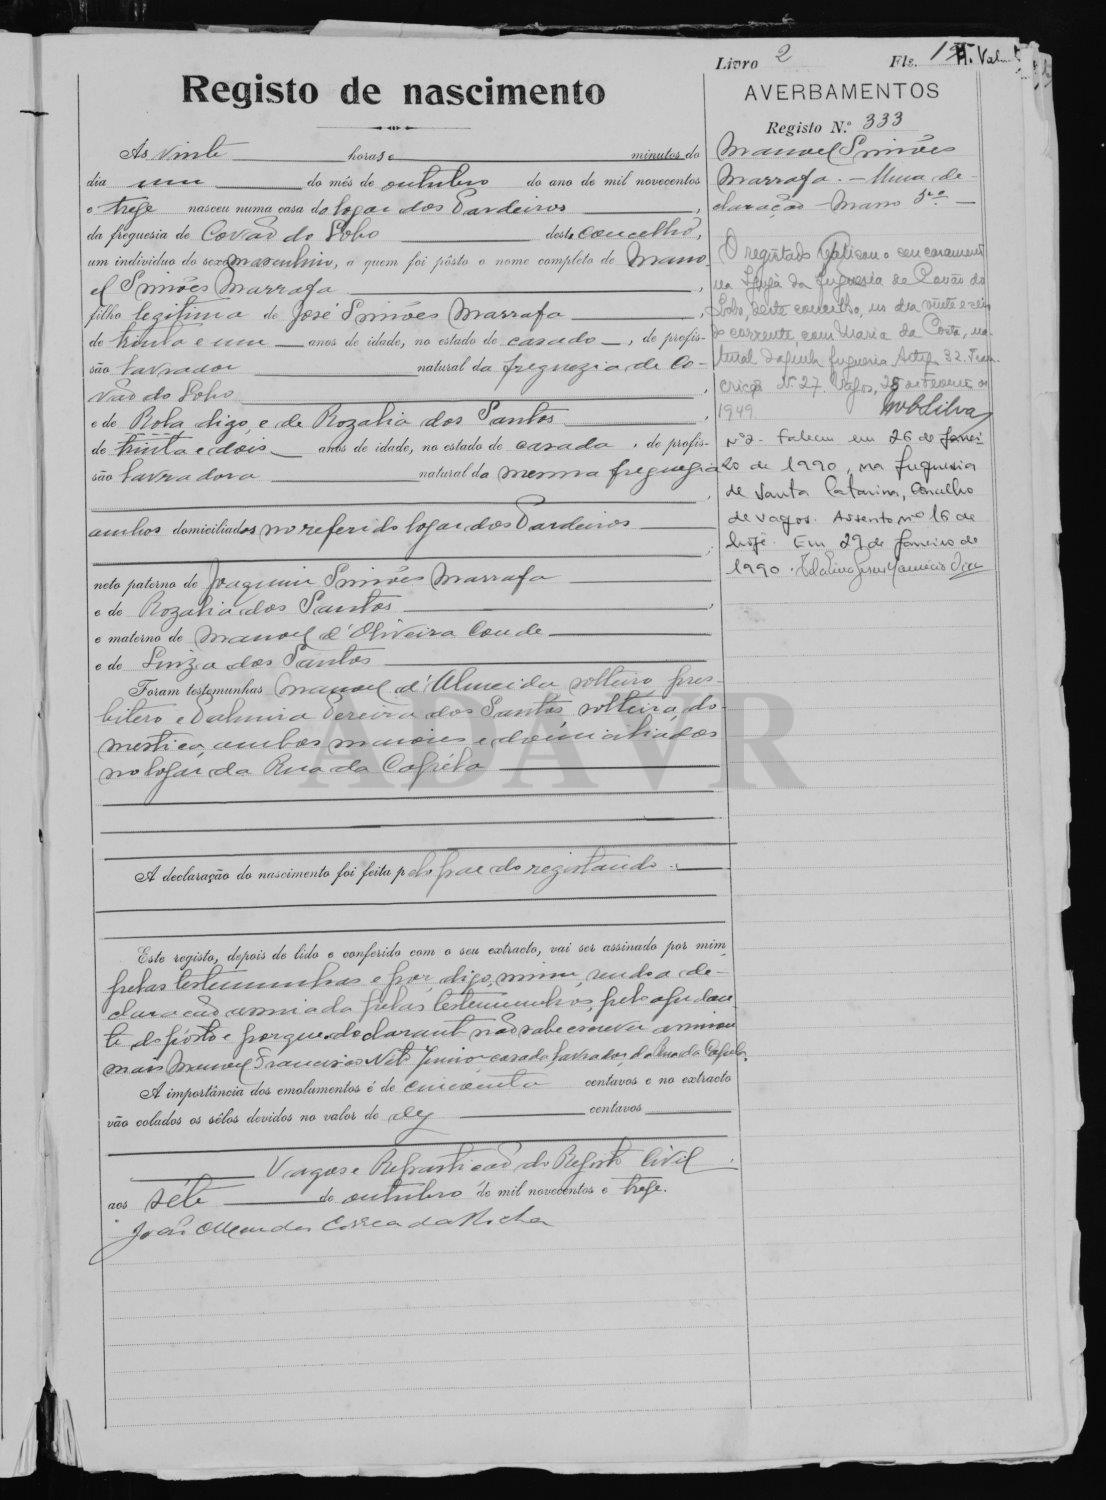 Registo de nascimento
Às vinte horas e minutos do
dia um do mês de outubro do ano de mil novecentos
e treze nasceu numa casa do logar dos Cardeiros,
da freguesia de Covão do Lobo deste concelho,
um individuo do sexo masculino, a quem foi pôsto o nome completo de Mano-
el Simões Marrafa,
filho legitimo de José Simões Marrafa,
de trinta e um anos de idade, no estado de casado, de profis-
são lavrador natural da freguezia de Co-
vão do Lobo,
e de Roza digo, e de Rozalia dos Santos,
de trinta e dois anos de idade, no estado de casada, de profis-
são lavradora natural da mesma freguezia,
ambos domiciliados no referido logar dos Cardeiros;
neto paterno de Joaquim Simões Marrafa
e de Rozalia dos Santos,
e materno de Manoel d'Oliveira Conde
e de Luiza dos Santos
Foram testemunhas Manoel d'Almeida solteiro, pres-
bitero e Palmira Pereira dos Santos, solteira, do-
mestica, ambos maiores e domiciliados
no logar da Rua da Capéla
A declaração do nascimento foi feita pelo pae do registando.
Este registo, depois de lido e conferido com o seu extracto, vai ser assinado por mim
pelas testemunhas e por, digo, mim, sendo a de-
claração assinada pelas testemunhas, pelo ajudan-
te do posto e porque o declarante não sabe escrever assinou
mais Manoel Francisco Neto Junior casado, lavrador, da Rua da Capéla.
A importância dos emolumentos é de cincoenta centavos e no extracto
vão colados os sêlos devidos no valor de dez centavos
Vagos e Repartição do Registo Civil
aos séte de outubro de mil novecentos e treze.
João Mendes Correa da Rocha
Livro 2 Fls.
AVERBAMENTOS
Registo N.º 333
Manoel Simões
Marrafa. — Uma de-
claração — Masso 3.º —
O registado celebrou o seu casamento
na Igreja da freguesia de Covão do
Lobo, deste concelho, no dia vinte e
do corrente, com Maria da Costa, na-
tural daquela freguesia. 32.
N.º 27. Vagos, 28 de Fevereiro de
1949.
Silva
Nº 2 - Faleceu em 26 de Janei-
ro de 1990, na freguesia
de Santa Catarina, Concelho
de Vagos. Assento nº 16 de
hoje. Em 29 de Janeiro de
1990.
ADAVR